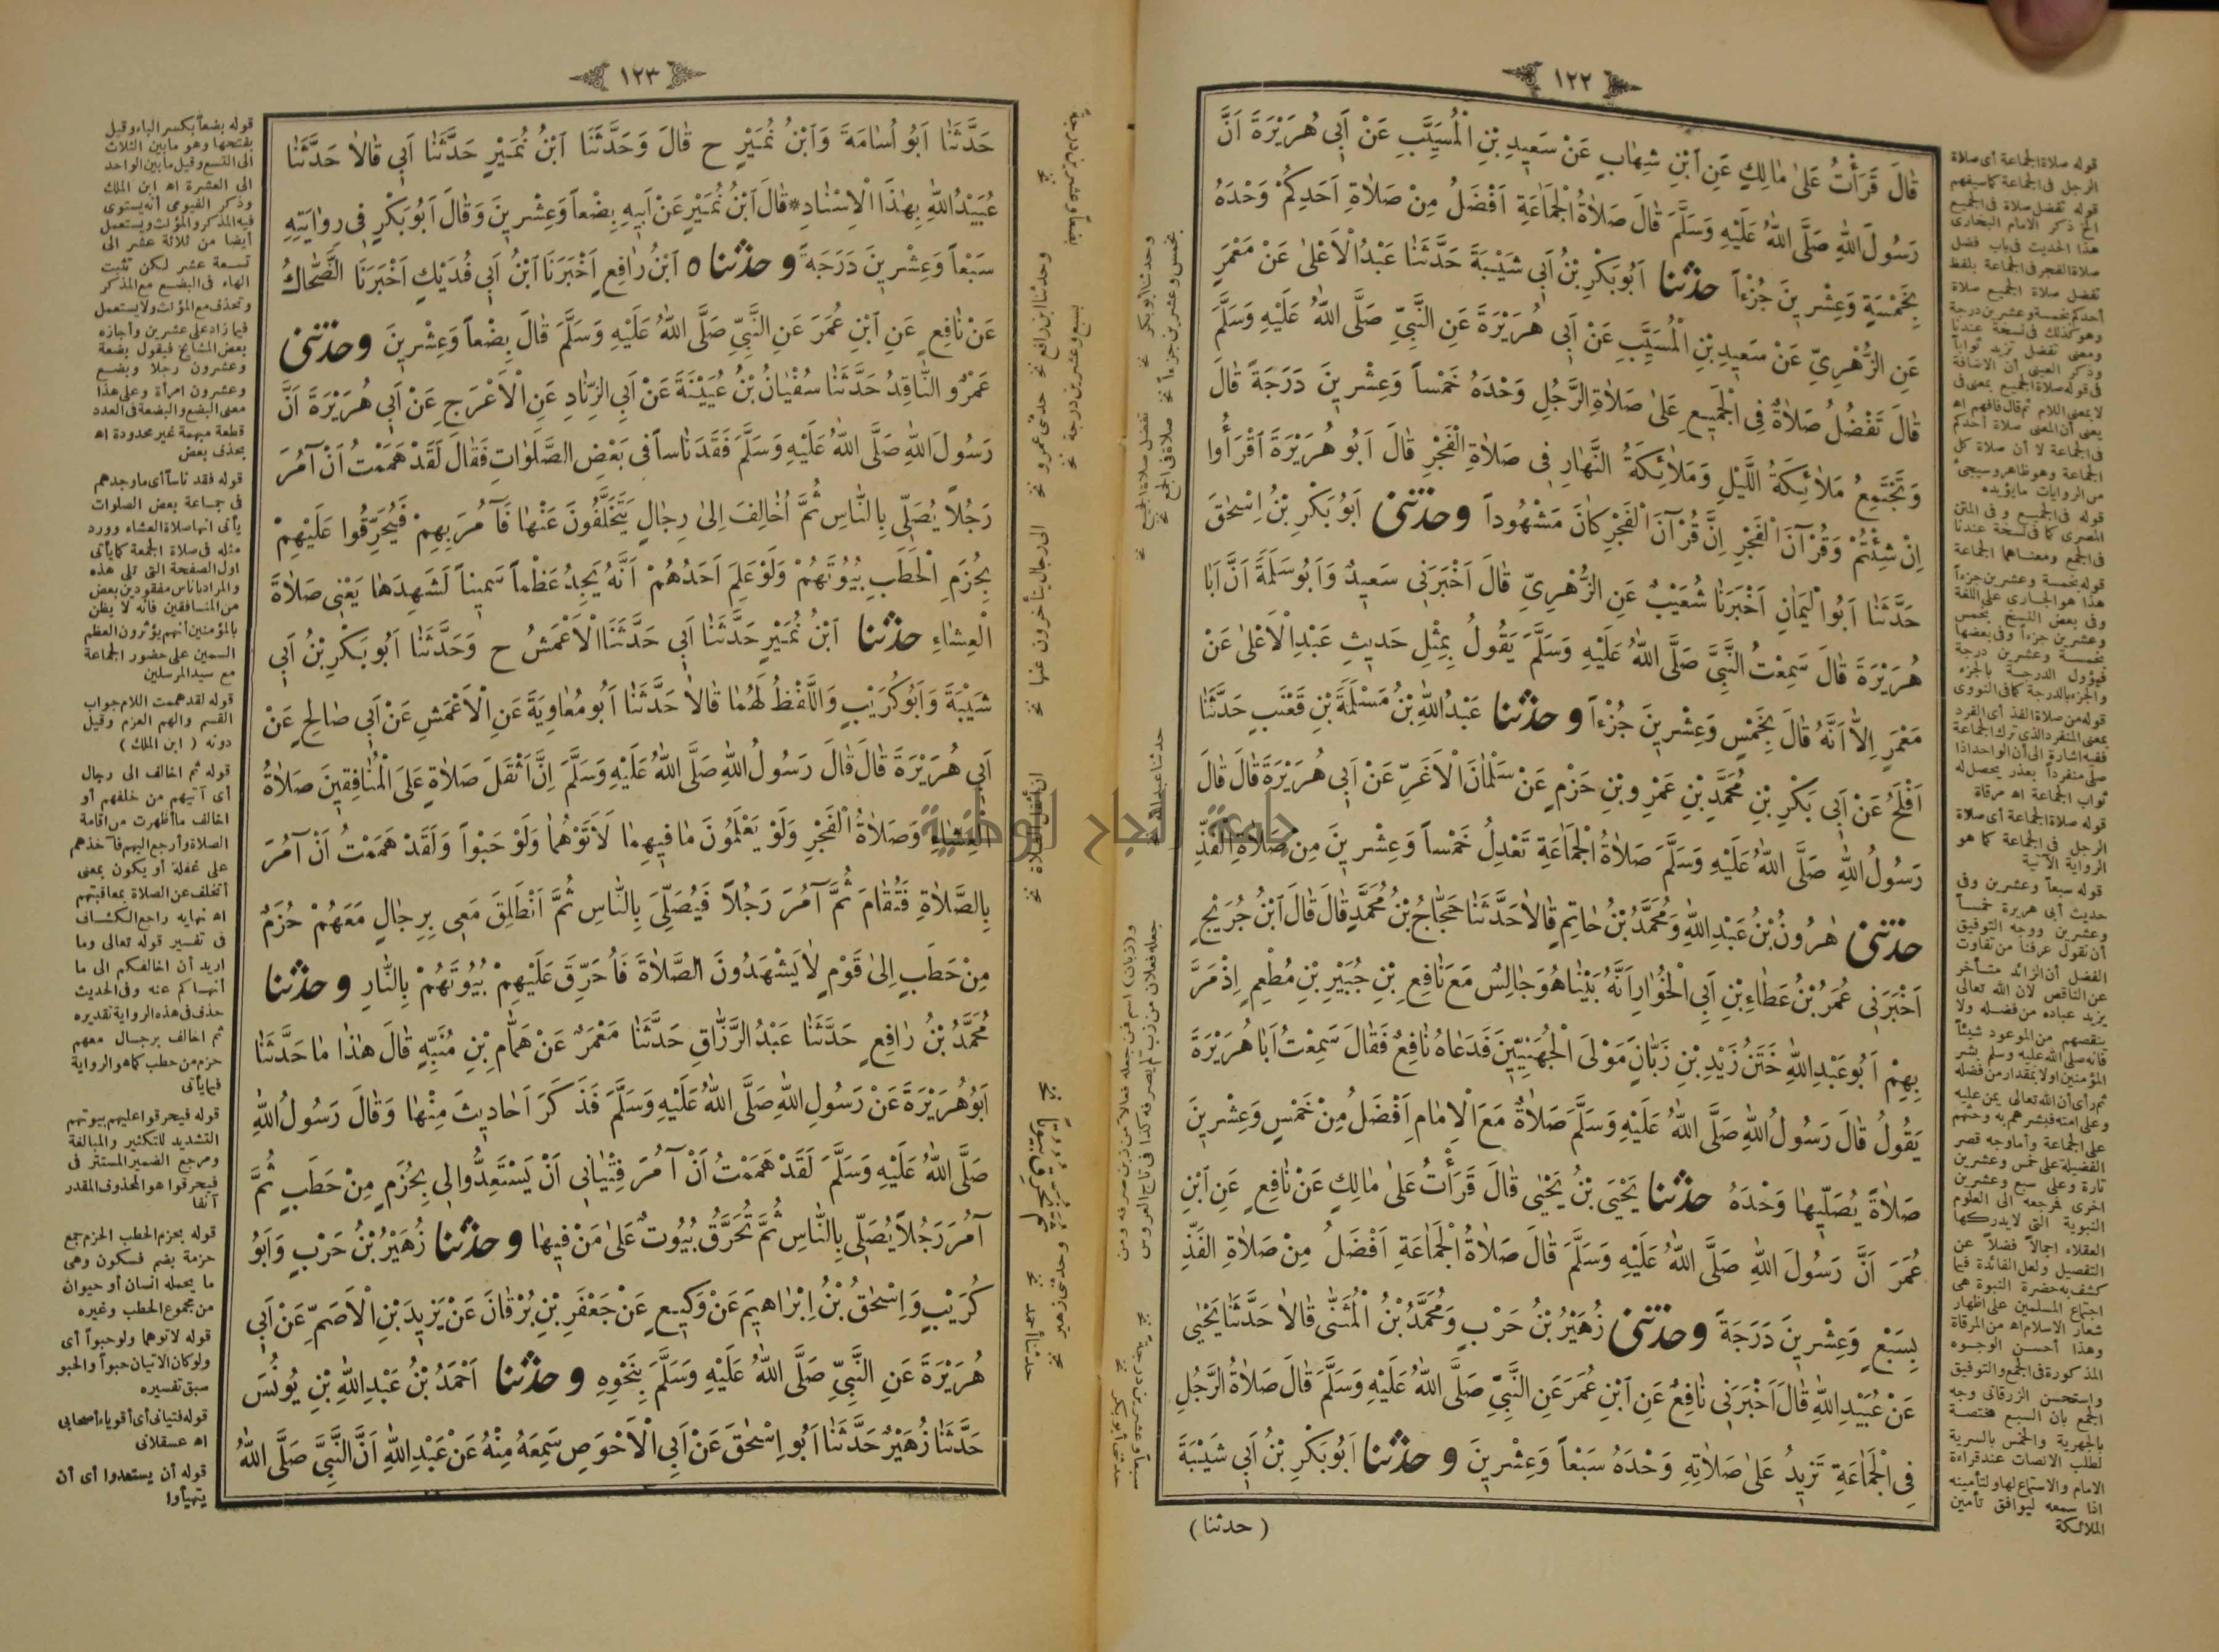 ١٢٢
قَالَ قَرَأْتُ عَلىٰ مٰالِكٍ عَنِ ابْنِ شِهٰابٍ عَنْ سَعيدِ بْنِ الْمُسَيِّبِ عَنْ اَبى هُرَيْرَةَ اَنَّ
رَسُولَ اللهِ صَلَّى اللهُ عَلَيْهِ وَسَلَّمَ قٰالَ صَلاٰةُ الْجَمَاعَةِ اَفْضَلُ مِنْ صَلاٰةِ اَحَدِكُمْ وَحْدَهُ
بِخَمْسَةٍ وَعِشْرينَ جُزْءاً حدثنا اَبُو بَكْرِ بْنُ اَبى شَيْبَةَ حَدَّثَنٰا عَبْدُ الْاَعْلىٰ عَنْ مَعْمَرٍ
عَنِ الزُّهْرِىِّ عَنْ سَعيدِ بْنِ الْمُسَيَّبِ عَنْ اَبى هُرَيْرَةَ عَنِ النَّبِىِّ صَلَّى اللهُ عَلَيْهِ وَسَلَّمَ
قٰالَ تَفْضُلُ صَلاٰةٌ فِى الْجَميعِ عَلىٰ صَلاٰةِ الرَّجُلِ وَحْدَهُ خَمْساً وَعِشْرينَ دَرَجَةً قٰالَ
وَتَجْتَمِعُ مَلاٰئِكَةُ اللَّيْلِ وَمَلاٰئِكَةُ النَّهٰارِ فى صَلاٰةِ الْفَجْرِ قٰالَ اَبُو هُرَيْرَةَ اقْرَأُوا
اِنْ شِئْتُمْ وَقُرْآنَ الْفَجْرِ اِنَّ قُرْآنَ الْفَجْرِ كٰانَ مَشْهُوداً وحدثنى اَبُو بَكْرِ بْنُ اِسْحٰقَ
حَدَّثَنٰا اَبُو الْيَمٰانِ اَخْبَرَنٰا شُعَيْبٌ عَنِ الزُّهْرِىِّ قٰالَ اَخْبَرَنى سَعيدٌ وَاَبُو سَلَمَةَ اَنَّ اَبٰا
هُرَيْرَةَ قٰالَ سَمِعْتُ النَّبِىَّ صَلَّى اللهُ عَلَيْهِ وَسَلَّمَ يَقُولُ بِمِثْلِ حَديثِ عَبْدِ الْاَعْلىٰ عَنْ
مَعْمَرٍ اِلاّٰ اَنَّهُ قٰالَ بِخَمْسٍ وَعِشْرينَ جُزْءاً وحدثنا عَبْدُ اللهِ بْنُ مَسْلَمَةَ بْنِ قَعْنَبٍ حَدَّثَنٰا
اَفْلَحُ عَنْ اَبى بَكْرِ بْنِ مُحَمَّدِ بْنِ عَمْرِو بْنِ حَزْمٍ عَنْ سَلْمٰانَ الْاَغَرِّ عَنْ اَبى هُرَيْرَةَ قٰالَ قٰالَ
رَسُولُ اللهِ صَلَّى اللهُ عَلَيْهِ وَسَلَّمَ صَلاٰةُ الْجَمٰاعَةِ تَعْدِلُ خَمْساً وَعِشْرينَ مِنْ صَلاٰةِ الْفَذِّ
حدثنى هٰرُونُ بْنُ عَبْدِ اللهِ وَمُحَمَّدُ بْنُ حٰاتِمٍ قٰالاٰ حَدَّثَنٰا حَجّٰاجُ بْنُ مُحَمَّدٍ قٰالَ قٰالَ ابْنُ جُرَيْجٍ
اَخْبَرَنى عُمَرُ بْنُ عَطٰاءِ بْنِ اَبِى الْخُوٰارِ اَنَّهُ بَيْنٰا هُوَ جٰالِسٌ مَعَ نٰافِعِ بْنِ جُبَيْرِ بْنِ مُطْعِمٍ اِذْ مَرَّ
بِهِمْ اَبُو عَبْدِ اللهِ خَتَنُ زَيْدِ بْنِ زَبّٰانٍ مَوْلَى الْجُهَنِيّينَ فَدَعٰاهُ نٰافِعٌ فَقٰالَ سَمِعْتُ اَبٰا هُرَيْرَةَ
يَقُولُ قٰالَ رَسُولُ اللهِ صَلَّى اللهُ عَلَيْهِ وَسَلَّمَ صَلاٰةٌ مَعَ الْاِمٰامِ اَفْضَلُ مِنْ خَمْسٍ وَعِشْرينَ
صَلاٰةً يُصَلّيهٰا وَحْدَهُ حدثنا يَحْيَى بْنُ يَحْيٰى قٰالَ قَرَأْتُ عَلىٰ مٰالِكٍ عَنْ نٰافِعٍ عَنِ ابْنِ
عُمَرَ اَنَّ رَسُولَ اللهِ صَلَّى اللهُ عَلَيْهِ وَسَلَّمَ قٰالَ صَلاٰةُ الْجَمٰاعَةِ اَفْضَلُ مِنْ صَلاٰةِ الْفَذِّ
بِسَبْعٍ وَعِشْرينَ دَرَجَةً وحدثنى زُهَيْرُ بْنُ حَرْبٍ وَمُحَمَّدُ بْنُ الْمُثَنّٰى قٰالاٰ حَدَّثَنٰا يَحْيٰى
عَنْ عُبَيْدِ اللهِ قٰالَ اَخْبَرَنى نٰافِعٌ عَنِ ابْنِ عُمَرَ عَنِ النَّبِىِّ صَلَّى اللهُ عَلَيْهِ وَسَلَّمَ قٰالَ صَلاٰةُ الرَّجُلِ
فِى الْجَمٰاعَةِ تَزيدُ عَلىٰ صَلاٰتِهِ وَحْدَهُ سَبْعاً وَعِشْرينَ وحدثنا اَبُو بَكْرِ بْنُ اَبى شَيْبَةَ
( حدثنا )
قوله صلاة الجماعة أى صلاة
الرجل فى الجماعة كما سيفهم
قوله تفضل صلاة فى الجميع
الخ ذكر الامام البخارى
هذا الحديث فى باب فضل
صلاة الفجر فى الجماعة بلفظ
تفضل صلاة الجميع صلاة
أحدكم بخمسة وعشرين درجة
وهو كذلك فى نسخة عندنا
ومعنى تفضل تزيد ثواباً
وذكر العينى أن الاضافة
فى قوله صلاة الجميع بمعنى فى
لا بمعنى اللام ثم قال فافهم اه
يعنى أن المعنى صلاة أحدكم
فى الجماعة لا أن صلاة كل
الجماعة وهو ظاهر وسيجىء
من الروايات ما يؤيده
قوله فى الجميع وفى المتن
المصرى كما فى نسخة عندنا
فى الجمع ومعناهما الجماعة
قوله بخمسة وعشرين جزءاً
هذا هو الجارى على اللغة
وفى بعض النسخ بخمس
وعشرين جزءاً وفى بعضها
بخمسة وعشرين درجة
فيؤول الدرجة بالجزء
والجزء بالدرجة كما فى النووى
قوله من صلاة الفذ أى الفرد
بمعنى المنفرد الذى ترك الجماعة
ففيه اشارة الى أن الواحد اذا
صلى منفرداً بعذر يحصل له
ثواب الجماعة اه مرقاة
قوله صلاة الجماعة أى صلاة
الرجل فى الجماعة كما هو
الرواية الآتية
قوله سبعاً وعشرين وفى
حديث أبى هريرة خمساً
وعشرين ووجه التوفيق
أن نقول عرفنا من تفاوت
الفضل أن الزائد متأخر
عن الناقص لان الله تعالى
يزيد عباده من فضله ولا
ينقصهم من الموعود شيئاً
فانه صلى الله عليه وسلم بشر
المؤمنين اولا بمقدار من فضله
ثم رأى أن الله تعالى يمن عليه
وعلى امته فبشرهم به وحثهم
على الجماعة وأما وجه قصر
الفضيلة على خمس وعشرين
تارة وعلى سبع وعشرين
اخرى فمرجعه الى العلوم
النبوية التى لا يدركها
العقلاء اجمالاً فضلاً عن
التفصيل ولعل الفائدة فيما
كشف به حضرة النبوة هى
اجتماع المسلمين على اظهار
شعار الاسلام اه من المرقاة
وهذا أحسن الوجوه
المذكورة فى الجمع والتوفيق
واستحسن الزرقانى وجه
الجمع بان السبع مختصة
بالجهرية والخمس بالسرية
لطلب الانصات عند قراءة
الامام والاستماع لها ولتأمينه
اذا سمعه ليوافق تأمين
الملائكة
بخمس وعشرين جزءاً نخ
وحدثنا ابو بكر نخ
صلاة فى الجمع نخ
تفضل صلاة الجميع نخ
حدثنا عبدالله
سبعاً وعشرين درجة نخ
حدثنى أبو بكر نخ
١٢٣
حَدَّثَنٰا اَبُو اُسٰامَةَ وَابْنُ نُمَيْرٍ ح قٰالَ وَحَدَّثَنَا ابْنُ نُمَيْرٍ حَدَّثَنٰا اَبى قٰالاٰ حَدَّثَنٰا
عُبَيْدُ اللهِ بِهٰذَا الْاِسْنٰادِ * قٰالَ ابْنُ نُمَيْرٍ عَنْ اَبيهِ بِضْعاً وَعِشْرينَ وَقٰالَ اَبُو بَكْرٍ فى رِوٰايَتِهِ
سَبْعاً وَعِشْرينَ دَرَجَةً وحدثناه ابْنُ رٰافِعٍ اَخْبَرَنَا ابْنُ اَبى فُدَيْكٍ اَخْبَرَنَا الضَّحّٰاكُ
عَنْ نٰافِعٍ عَنِ ابْنِ عُمَرَ عَنِ النَّبِىِّ صَلَّى اللهُ عَلَيْهِ وَسَلَّمَ قٰالَ بِضْعاً وَعِشْرينَ وحدثنى
عَمْرٌو النّٰاقِدُ حَدَّثَنٰا سُفْيٰانُ بْنُ عُيَيْنَةَ عَنْ اَبِى الزِّنٰادِ عَنِ الْاَعْرَجِ عَنْ اَبى هُرَيْرَةَ اَنَّ
رَسُولَ اللهِ صَلَّى اللهُ عَلَيْهِ وَسَلَّمَ فَقَدَ نٰاساً فى بَعْضِ الصَّلَوٰاتِ فَقٰالَ لَقَدْ هَمَمْتُ اَنْ آمُرَ
رَجُلاً يُصَلّى بِالنّٰاسِ ثُمَّ اُخٰالِفَ اِلىٰ رِجٰالٍ يَتَخَلَّفُونَ عَنْهٰا فَآمُرَ بِهِمْ فَيُحَرِّقُوا عَلَيْهِمْ
بِحُزَمِ الْحَطَبِ بُيُوتَهُمْ وَلَوْ عَلِمَ اَحَدُهُمْ اَنَّهُ يَجِدُ عَظْماً سَميناً لَشَهِدَهٰا يَعْنى صَلاٰةَ
الْعِشٰاءِ حدثنا ابْنُ نُمَيْرٍ حَدَّثَنٰا اَبى حَدَّثَنَا الْاَعْمَشُ ح وَحَدَّثَنٰا اَبُو بَكْرِ بْنُ اَبى
شَيْبَةَ وَاَبُو كُرَيْبٍ وَاللَّفْظُ لَهُمٰا قٰالاٰ حَدَّثَنٰا اَبُو مُعٰاوِيَةَ عَنِ الْاَعْمَشِ عَنْ اَبى صٰالِحٍ عَنْ
اَبى هُرَيْرَةَ قٰالَ قٰالَ رَسُولُ اللهِ صَلَّى اللهُ عَلَيْهِ وَسَلَّمَ اِنَّ اَثْقَلَ صَلاٰةٍ عَلَى الْمُنٰافِقينَ صَلاٰةُ
الْعِشٰاءِ وَصَلاٰةُ الْفَجْرِ وَلَوْ يَعْلَمُونَ مٰا فيهِمٰا لَاَتَوْهُمٰا وَلَوْ حَبْواً وَلَقَدْ هَمَمْتُ اَنْ آمُرَ
بِالصَّلاٰةِ فَتُقٰامَ ثُمَّ آمُرَ رَجُلاً فَيُصَلِّىَ بِالنّٰاسِ ثُمَّ اَنْطَلِقَ مَعى بِرِجٰالٍ مَعَهُمْ حُزَمٌ
مِنْ حَطَبٍ اِلىٰ قَوْمٍ لاٰ يَشْهَدُونَ الصَّلاٰةَ فَاُحَرِّقَ عَلَيْهِمْ بُيُوتَهُمْ بِالنّٰارِ وحدثنا
مُحَمَّدُ بْنُ رٰافِعٍ حَدَّثَنٰا عَبْدُ الرَّزّٰاقِ حَدَّثَنٰا مَعْمَرٌ عَنْ هَمّٰامِ بْنِ مُنَبِّهٍ قٰالَ هٰذٰا مٰا حَدَّثَنٰا
اَبُو هُرَيْرَةَ عَنْ رَسُولِ اللهِ صَلَّى اللهُ عَلَيْهِ وَسَلَّمَ فَذَكَرَ اَحٰاديثَ مِنْهٰا وَقٰالَ رَسُولُ اللهِ
صَلَّى اللهُ عَلَيْهِ وَسَلَّمَ لَقَدْ هَمَمْتُ اَنْ آمُرَ فِتْيٰانى اَنْ يَسْتَعِدُّوا لى بِحُزَمٍ مِنْ حَطَبٍ ثُمَّ
آمُرَ رَجُلاً يُصَلّى بِالنّٰاسِ ثُمَّ تُحَرَّقُ بُيُوتٌ عَلىٰ مَنْ فيهٰا وحدثنا زُهَيْرُ بْنُ حَرْبٍ وَاَبُو
كُرَيْبٍ وَاِسْحٰقُ بْنُ اِبْرٰاهيمَ عَنْ وَكيعٍ عَنْ جَعْفَرِ بْنِ بُرْقٰانَ عَنْ يَزيدَ بْنِ الْاَصَمِّ عَنْ اَبى
هُرَيْرَةَ عَنِ النَّبِىِّ صَلَّى اللهُ عَلَيْهِ وَسَلَّمَ بِنَحْوِهِ وحدثنا اَحْمَدُ بْنُ عَبْدِ اللهِ بْنِ يُونُسَ
حَدَّثَنٰا زُهَيْرٌ حَدَّثَنٰا اَبُو اِسْحٰقَ عَنْ اَبِى الْاَحْوَصِ سَمِعَهُ مِنْهُ عَنْ عَبْدِ اللهِ اَنَّ النَّبِىَّ صَلَّى اللهُ
قوله بضعاً بكسر الباء وقيل
بفتحها وهو ما بين الثلاث
الى التسع وقيل ما بين الواحد
الى العشرة اه ابن الملك
وذكر الفيومى أنه يستوى
فيه المذكر والمؤنث ويستعمل
أيضا من ثلاثة عشر الى
تسعة عشر لكن تثبت
الهاء فى البضع مع المذكر
وتحذف مع المؤنث ولا يستعمل
فيما زاد على عشرين وأجازه
بعض المشايخ فيقول بضعة
وعشرون رجلا وبضع
وعشرون امرأة وعلى هذا
معنى البضع والبضعة فى العدد
قطعة مبهمة غير محدودة اه
بحذف بعض
قوله فقد ناساً أى ما وجدهم
فى جماعة بعض الصلوات
يأتى انها صلاة العشاء وورد
مثله فى صلاة الجمعة كما يأتى
اول الصفحة التى تلى هذه
والمراد بالناس مفقودين بعض
من المنافقين فانه لا يظن
بالمؤمنين أنهم يؤثرون العظم
السمين على حضور الجماعة
مع سيد المرسلين
قوله لقد هممت اللام جواب
القسم والهم العزم وقيل
دونه ( ابن الملك )
قوله ثم اخالف الى رجال
أى آتيهم من خلفهم أو
اخالف ما أظهرت من اقامة
الصلاة وأرجع اليهم فآخذهم
على غفلة أو يكون بمعنى
أتخلف عن الصلاة بمعاقبتهم
اه نهايه راجع الكشاف
فى تفسير قوله تعالى وما
اريد أن اخالفكم الى ما
أنهاكم عنه وفى الحديث
حذف فى هذه الرواية تقديره
ثم اخالف برجال معهم
حزم من حطب كما هو الرواية
فيما يأتى
قوله فيحرقوا عليهم بيوتهم
التشديد للتكثير والمبالغة
ومرجع الضمير المستتر فى
فيحرقوا هو المحذوف المقدر
آنفا
قوله بحزم الحطب الحزم جمع
حزمة بضم فسكون وهى
ما يحمله انسان أو حيوان
من مجموع الحطب وغيره
قوله لاتوهما ولو حبواً أى
ولو كان الاتيان حبواً والحبو
سبق تفسيره
قوله فتيانى أى أقوياء أصحابى
اه عسقلانى
قوله أن يستعدوا أى أن
يتهيأوا
بضعاً وعشرين درجة نخ
وحدثنا ابن رافع نخ
بسبع وعشرين درجة نخ
حدثنى عمرو نخ
الى رجال يتأخرون عنها نخ
ثم نحرق بيوتاً نخ
وحدثنى زهير نخ
حدثنا أحمد نخ
جامعة النجاح الوطنية